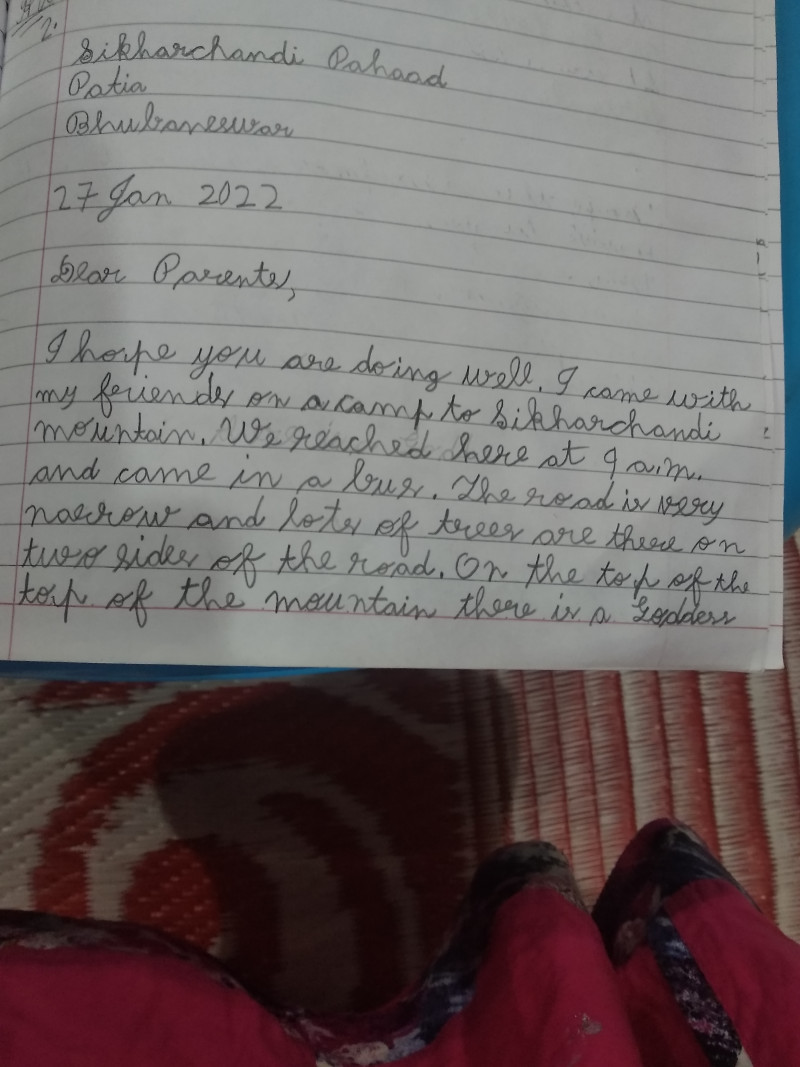 2.
Sikharchandi Pahaad
Patia
Bhubaneswar
27 Jan 2022
Dear Parents,
I hope you are doing well. I came with
my friends on a camp to Sikharchandi
mountain. We reached here at 9 a.m.
and came in a bus. The road is very
narrow and lots of trees are there on
two sides of the road. On the top of the
top of the mountain there is a Goddess